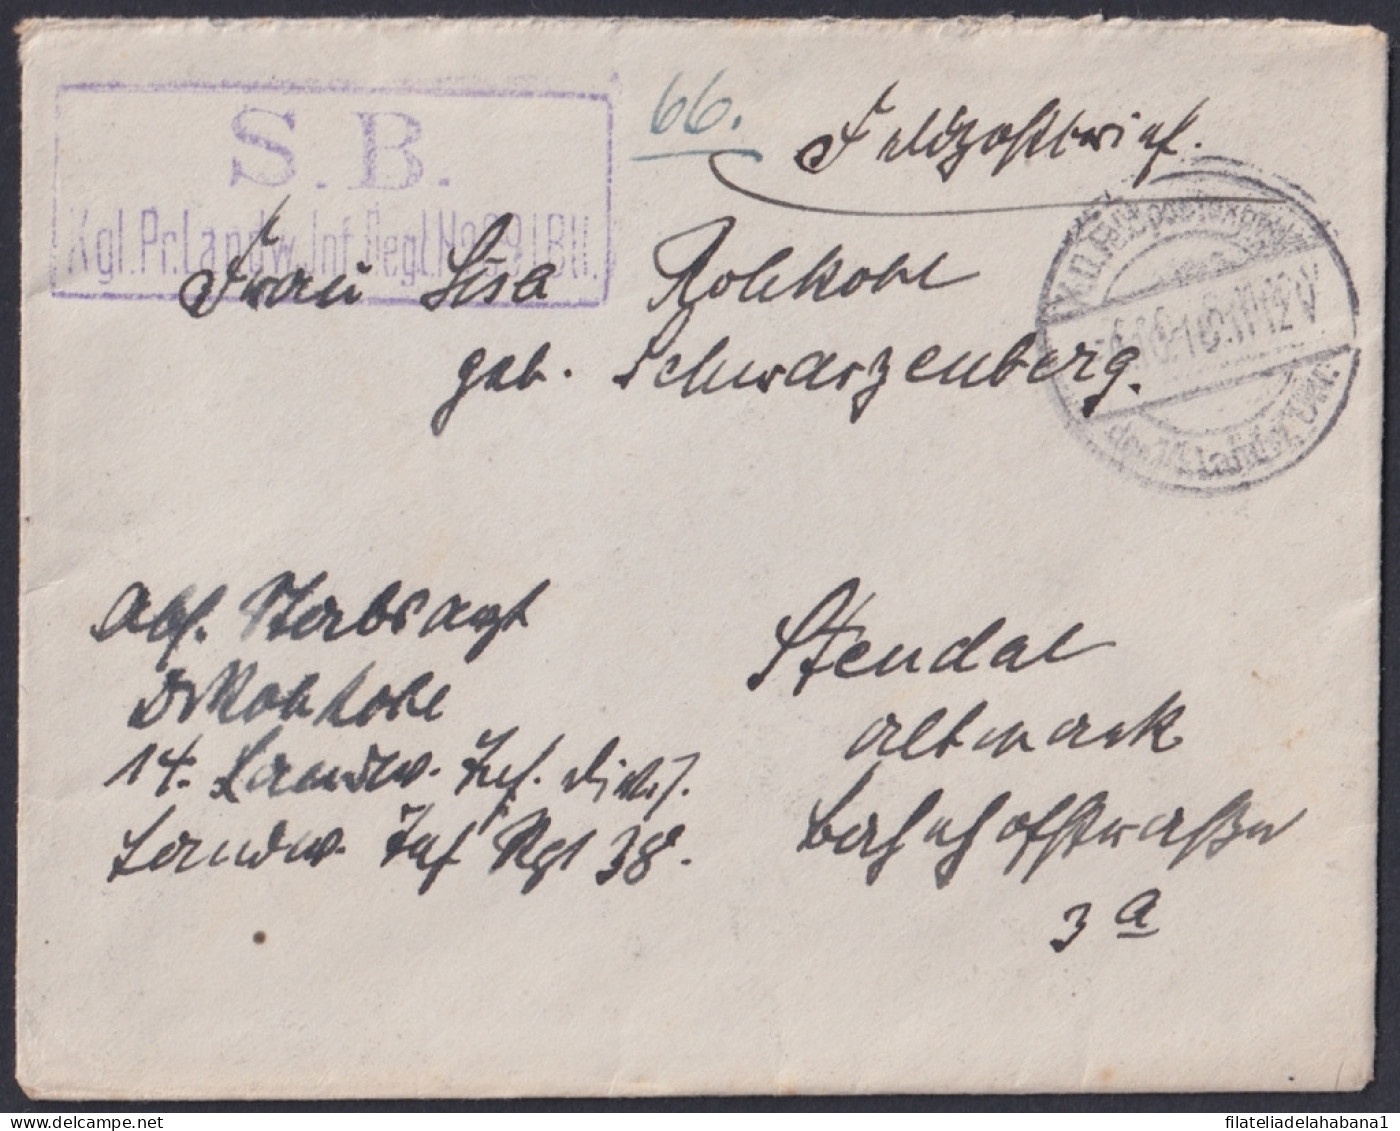 S. B.
Kgl. Pr. Landw. Inf. Regt. No I Btl.
66.
Feldpostbrief.
K.D. Feldpostexped.
11-12 V
der 14. Landw. Div.
Frau Lisa Rohkohl
geb. Schwarzenberg.
Abs. Stabsarzt
Dr Rohkohl
14. Landw. Inf. Divis.
Landw. Inf Rgt 38.
Stendal
Altmark
Bahnhofstraße
3 a
filateliadelahabana1